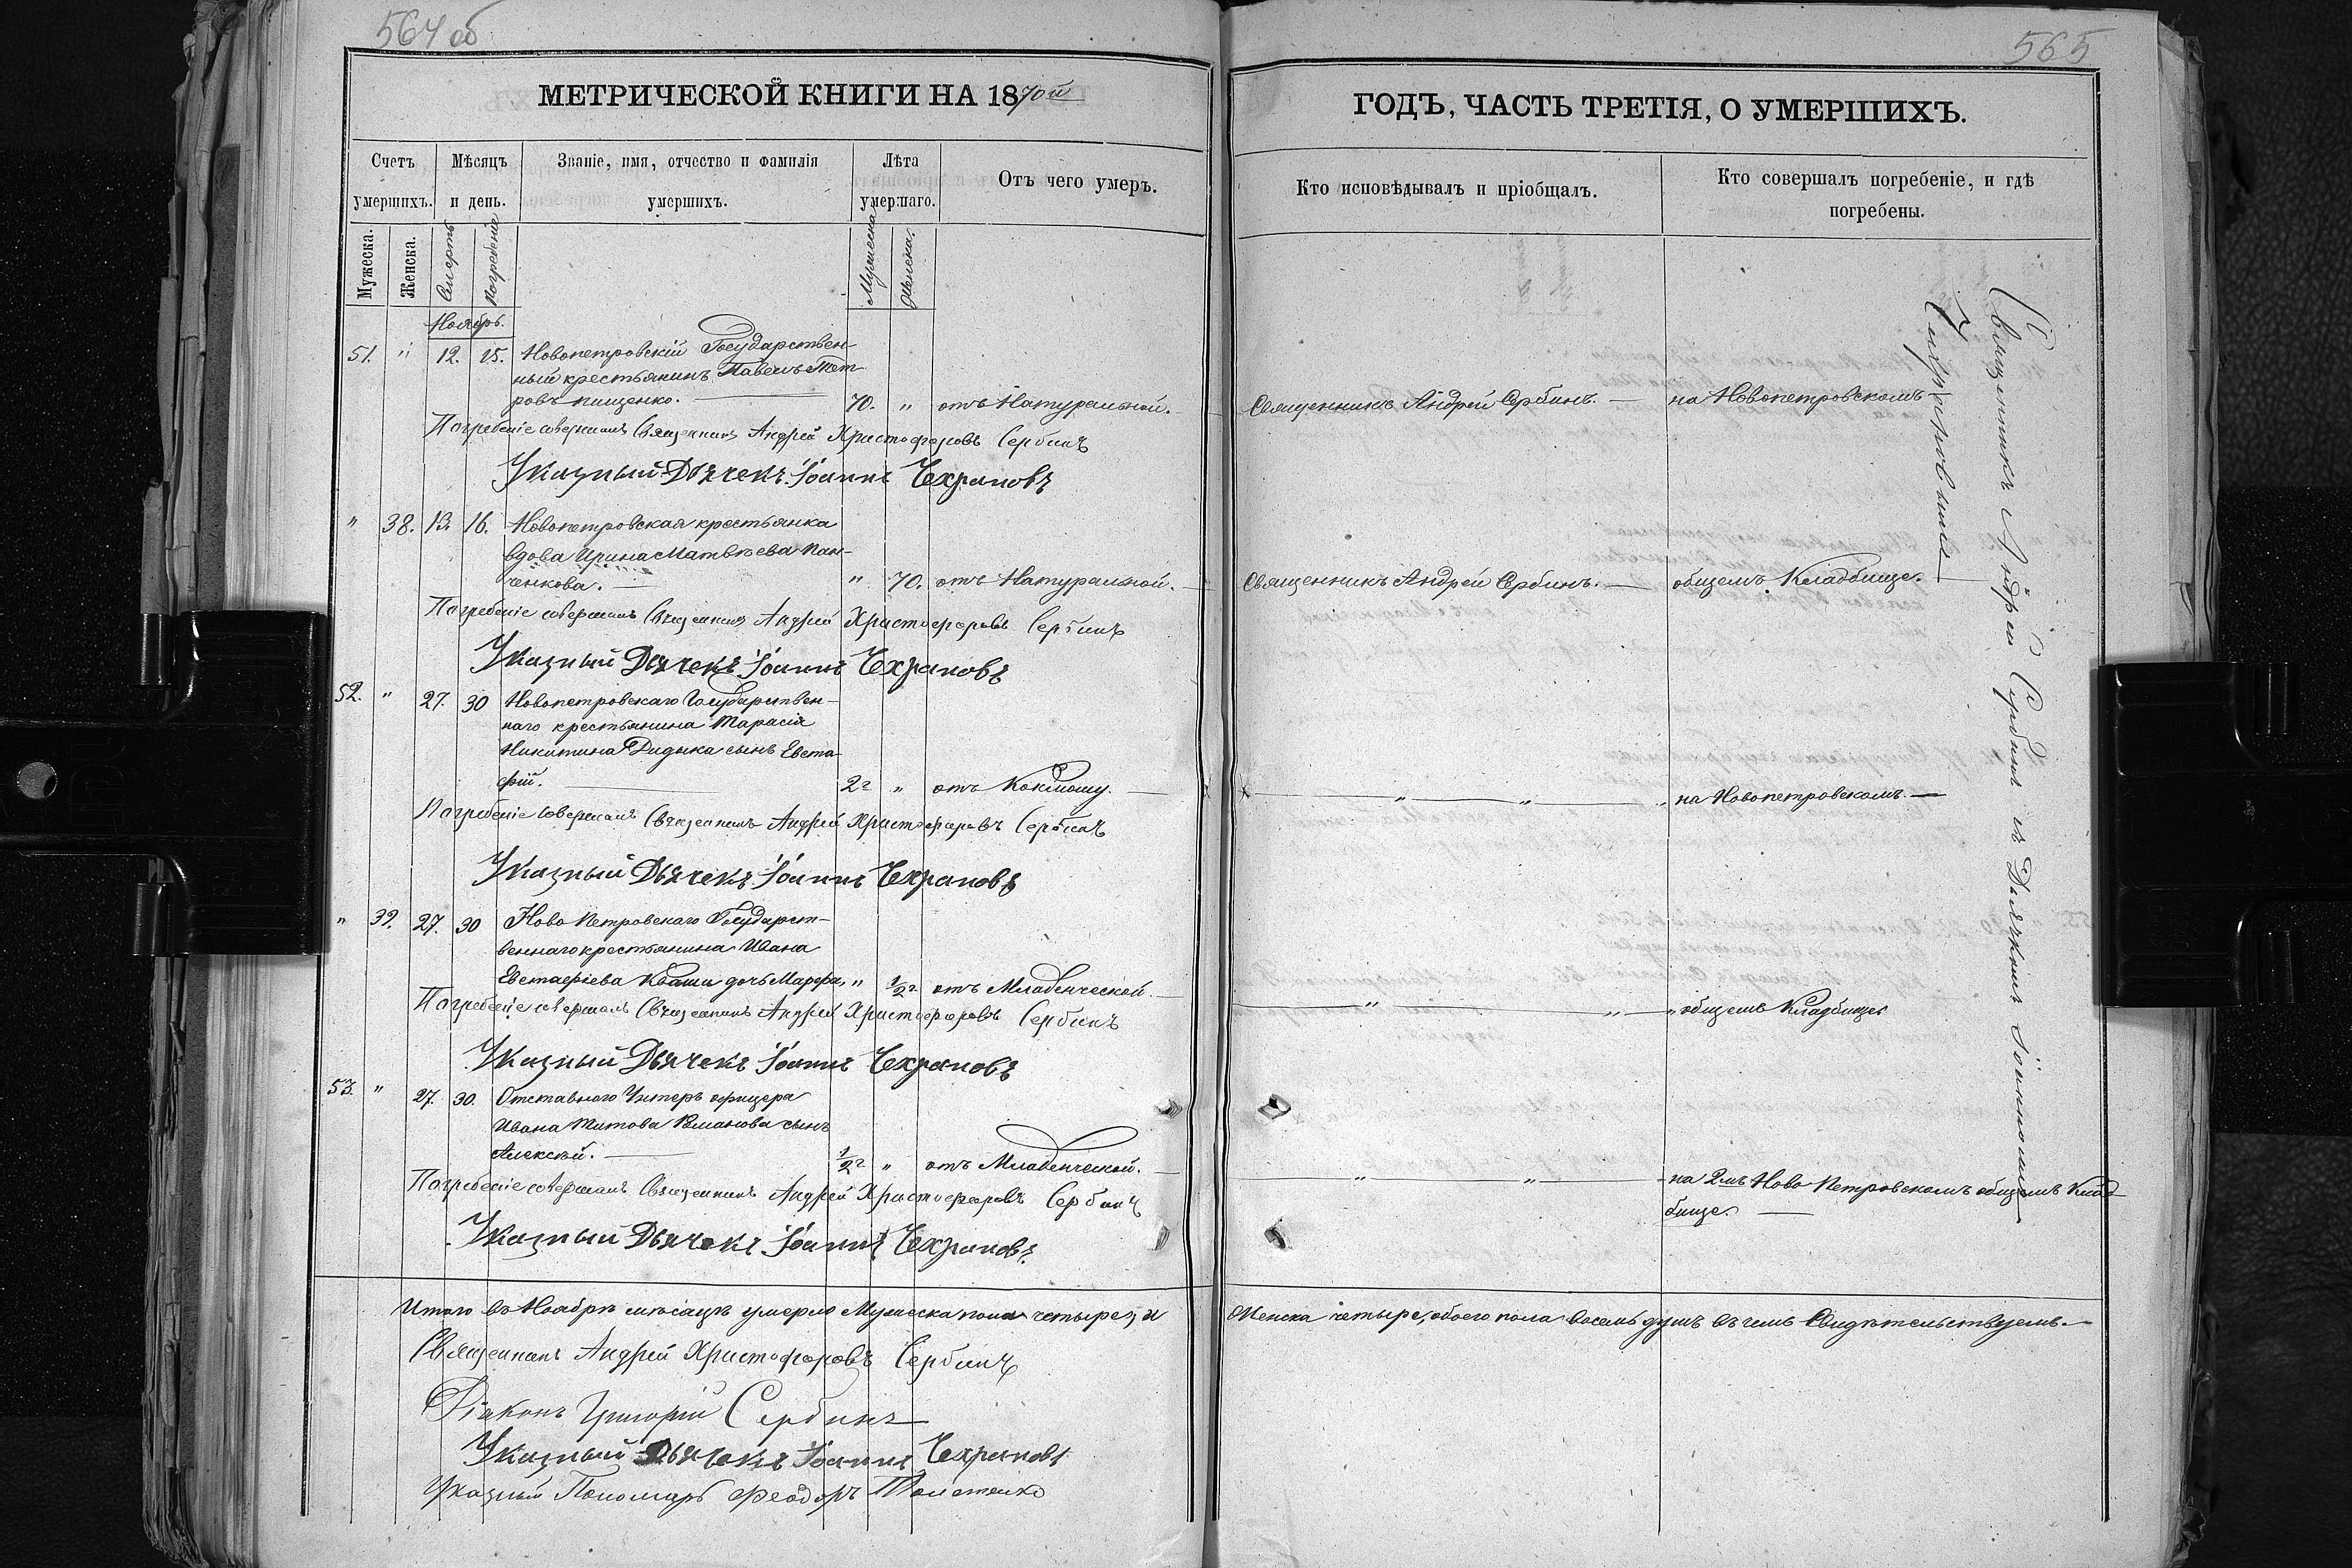 564 об
МЕТРИЧЕСКОЙ КНИГИ НА 1870й
Счетъ умершихъ.
Мѣсяцъ и день.
Званіе, имя, отчество и фамилія умершихъ.
Лѣта умершаго.
Отъ чего умеръ.
Мужеска.
Женска.
Смерть
Погребеніе
Мужеска
Женска.
Ноябрь.
51. " 12. 15. Новопетровскій Государствен-
ный крестьянинъ Павелъ Пет
ровъ Пищенко. 70. " отъ Натуральной.
Погребеніе совершалъ Священникъ Андрей Христофоровъ Сербинъ
Указный Дьячекъ Іоаннъ Чехрановъ
" 38. 13. 16. Новопетровская крестьянка
вдова Ирина Матвѣева Пан-
ченкова. " 70. отъ Натуральной.
Погребеніе совершалъ Священникъ Андрей Христофоровъ Сербинъ
Указный Дьячекъ Іоаннъ Чехрановъ
52. " 27. 30 Новопетровскаго Государствен-
наго крестьянина Тарасія
Никитина Дидыка сынъ Евста
фій. 2г " отъ Коклюшу.
Погребеніе совершалъ Священникъ Андрей Христофоровъ Сербинъ
Указный Дьячекъ Іоаннъ Чехрановъ
" 39. 27. 30 Ново Петровскаго Государст-
веннаго крестьянина Ивана
Евстафіева Кваши дочь Марфа, " 1/2г отъ Младенческой.
Погребеніе совершалъ Священникъ Андрей Христофоровъ Сербинъ
Указный Дьячекъ Іоаннъ Чехрановъ
53. " 27. 30. Отставного Унтеръ офицера
Ивана Титова сынъ
Алексѣй. 1/2г " отъ Младенческой.
Погребеніе совершалъ Священникъ Андрей Христофоровъ Сербинъ
Указный Дьячекъ Іоаннъ Чехрановъ.
Итого въ Ноябрѣ мѣсяцѣ умерло Мужеска пола четыре, и
Священникъ Андрей Христофоровъ Сербинъ
Діаконъ Григорій Сербинъ
Указный Дьячекъ Іоаннъ Чехрановъ
Указный Пономарь Феодоръ
565
ГОДЪ, ЧАСТЬ ТРЕТІЯ, О УМЕРШИХЪ.
Кто исповѣдывалъ и пріобщалъ.
Кто совершалъ погребеніе, и гдѣ
погребены.
Священникъ Андрей Сербинъ. на Новопетровскомъ
Священникъ Андрей Сербинъ. общемъ Кладбище.
" " " на Новопетровскомъ.
" " " общемъ Кладбище
" " на 2мъ Ново Петровскомъ общемъ Клад
бище.
Священникъ Андрей Сербинъ съ Дьячкомъ Іоанномъ
Чехрановымъ
Женска четыре, обоего пола восемь душъ въ чемъ Свидѣтельствуемъ.